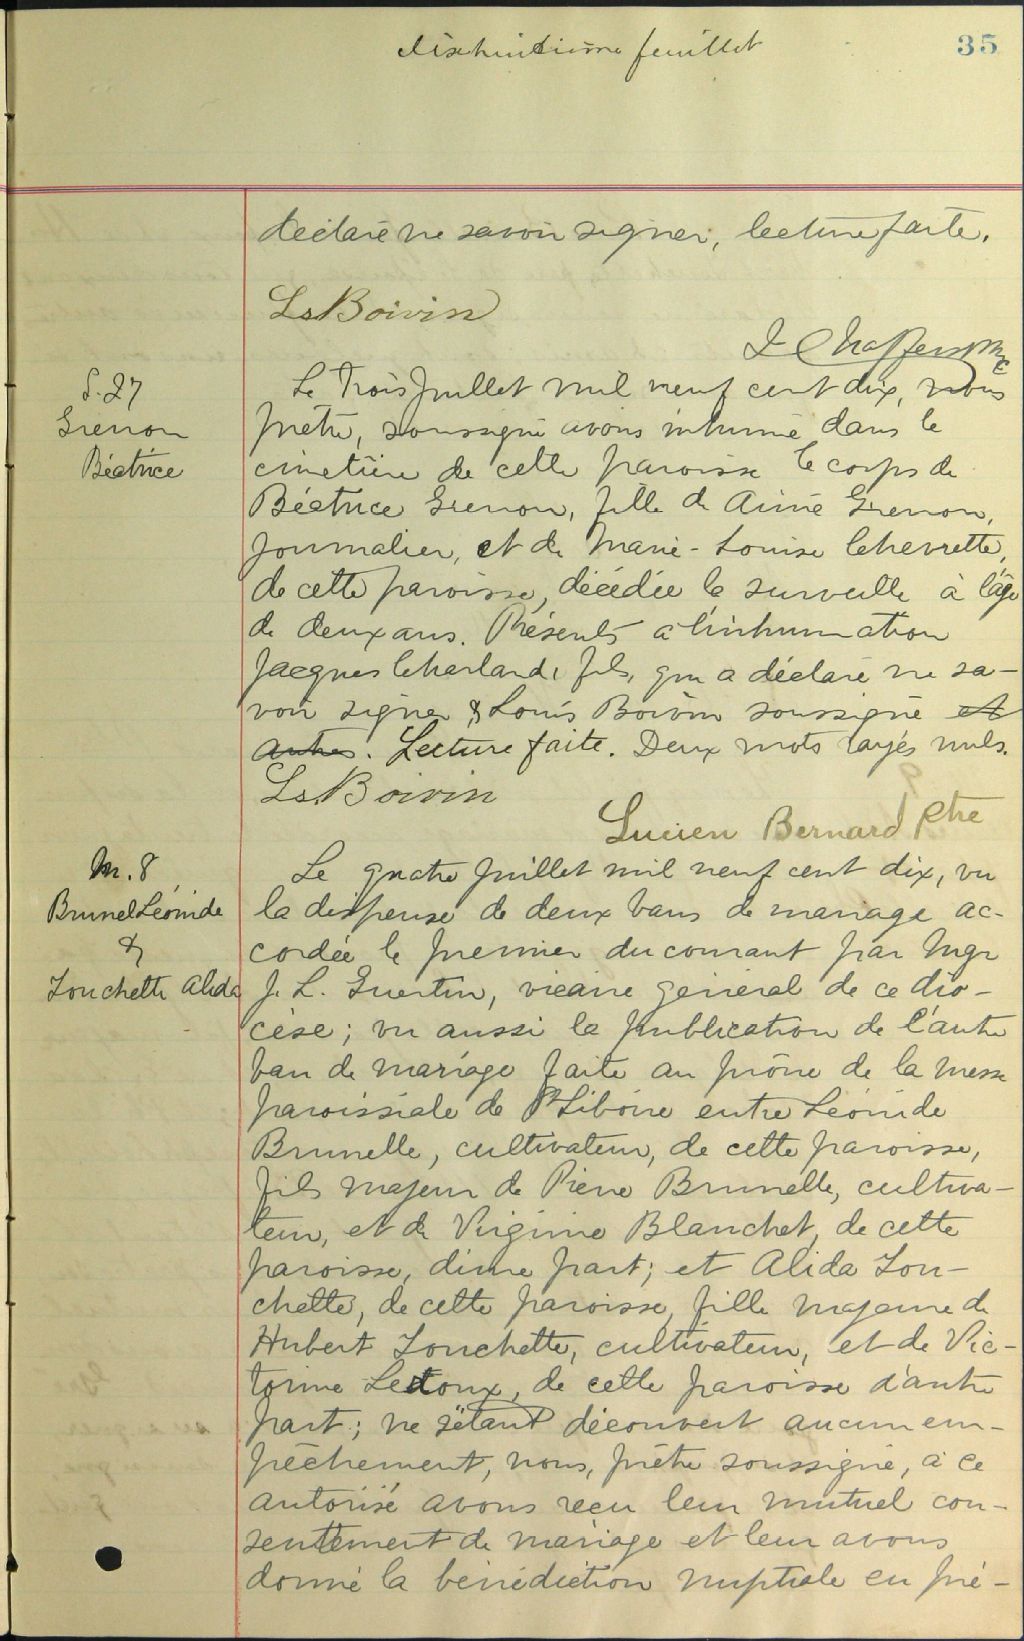 dixhuitième feuillet
35
déclaré ne savoir signer, lecture faite.
Ls Boivin
S. 27
Grenon
Béatrice
Le trois Juillet mil neuf cent dix, nous
prêtre, soussigné avons inhumé dans le
cimetière de cette paroisse le corps de
Béatrice Grenon, fille de Aimé Grenon,
journalier, et de Marie-Louise Chevrette,
de cette paroisse, décédée la surveille à l'âge
de deux ans. Présents à l'inhumation
Jacques Charland, fils, qui a déclaré ne sa-
voir signer & Louis Boivin soussigné et
autres. Lecture faite. Deux mots rayés nuls.
Ls. Boivin
Lucien Bernard Ptre
M. 8
Brunel Léonide
&
Touchette Alida
Le quatre Juillet mil neuf cent dix, vu
la dispense de deux bans de mariage ac-
cordée le premier du courant par Mgr
J. L. Guertin, vicaire général de ce dio-
cèse; vu aussi la publication de l'autre
ban de mariage faite au prône de la messe
paroissiale de St Liboire entre Léonide
Brunelle, cultivateur, de cette paroisse,
fils majeur de Pierre Brunelle, cultiva-
teur, et de Virginie Blanchet, de cette
paroisse, d'une part; et Alida Tou-
chette, de cette paroisse, fille majeure de
Hubert Touchette, cultivateur, et de Vic-
torine Ledoux, de cette paroisse d'autre
part; ne s'étant découvert aucun em-
pêchement, nous, prêtre soussigné, à ce
autorisé avons reçu leur mutuel con-
sentement de mariage et leur avons
donné la bénédiction nuptiale en pré-